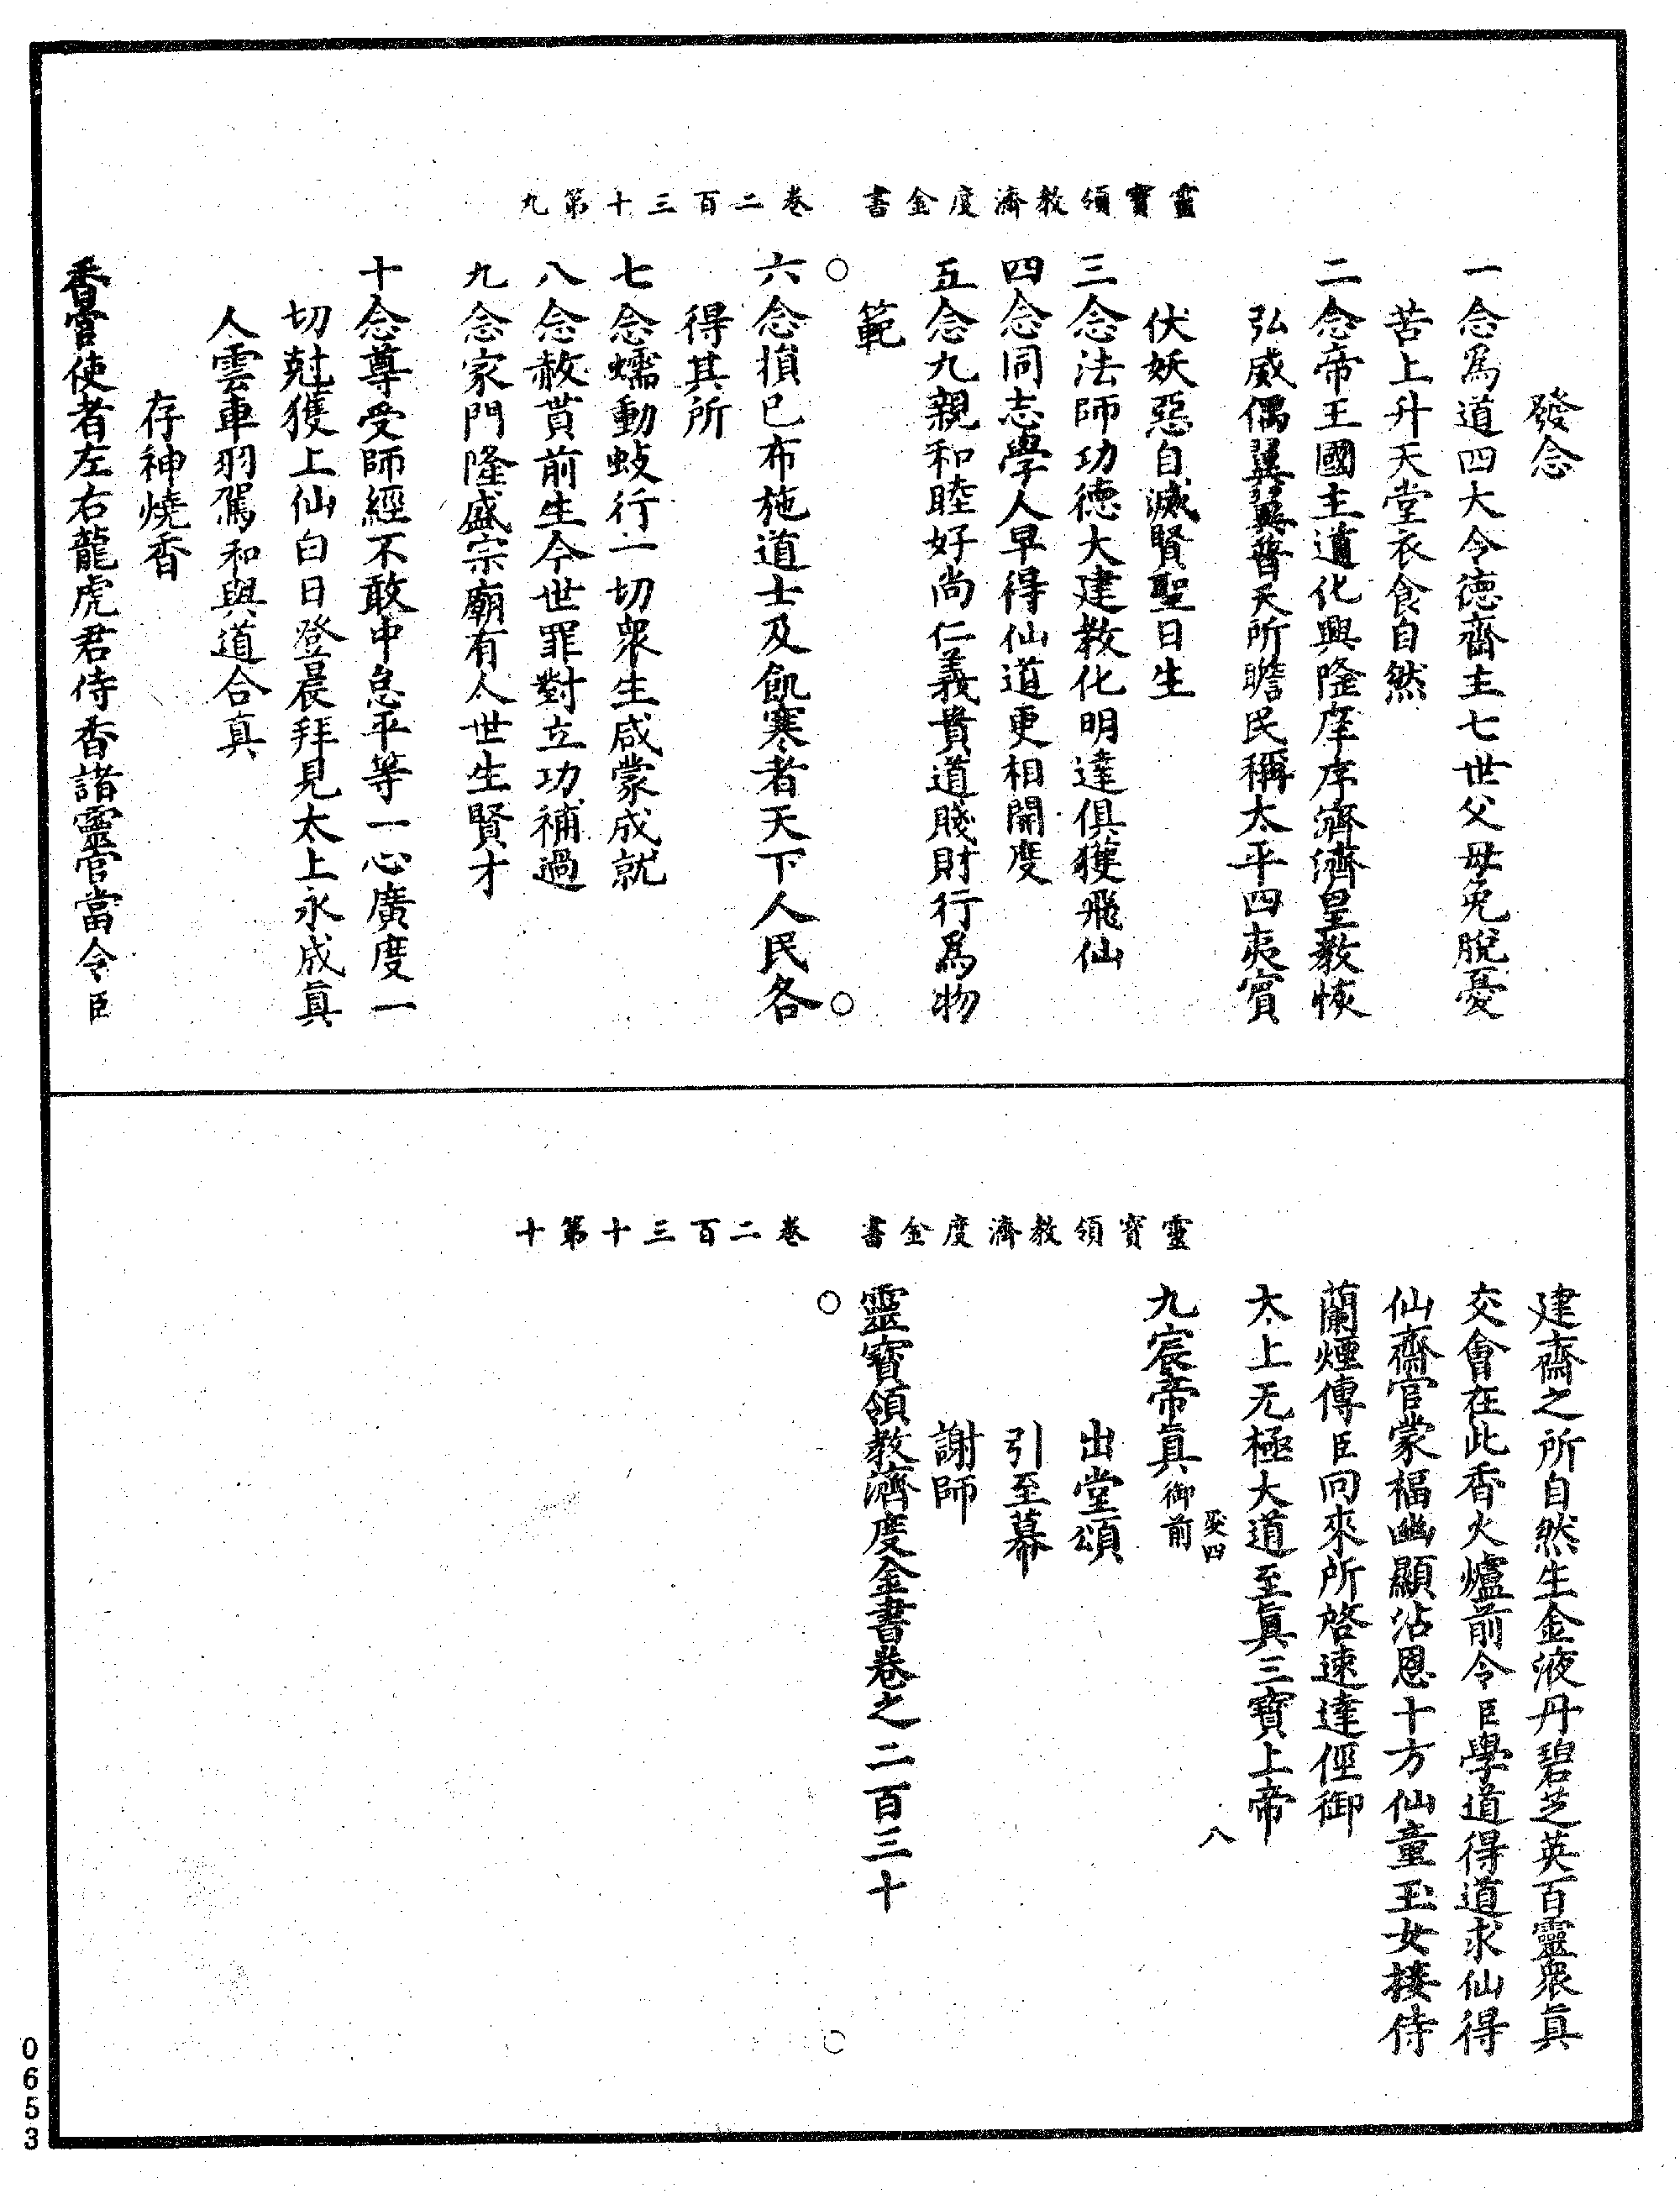 靈寶領教濟度金書　卷二百三十第九
發念
一念爲道四大令德齋主七世父母免脫憂
苦上升天堂衣食自然
二念帝王國主道化興隆庠序濟濟皇教恢
弘威偶翼翼普天所瞻民稱太平四夷賓
伏妖惡自滅賢聖日生
三念法師功德大建教化明達俱獲飛仙
四念同志學人早得仙道更相開度
五念九親和睦好尚仁義貴道賤財行爲物
範
六念損己布施道士及飢寒者天下人民各
得其所
七念蠕動蚑行一切衆生咸蒙成就
八念赦貰前生今世罪對立功補過
九念家門隆盛宗廟有人世生賢才
十念尊受師經不敢中怠平等一心廣度一
切尅獲上仙白日登晨拜見太上永成眞
人雲車羽駕和與道合真
存神燒香
香官使者左右龍虎君侍香諸靈官當令臣
靈寶領教濟度金書　卷二百三十第十
建齋之所自然生金液丹碧芝英百靈衆眞
交會在此香火爐前令臣學道得道求仙得
仙齋官蒙福幽顯沾恩十方仙童玉女接侍
蘭煙傳臣向來所啓速達徑御
太上无極大道至眞三寶上帝
八
九宸帝眞御前
出堂頌
引至幕
謝師
靈寶領教濟度金書卷之二百三十
0653